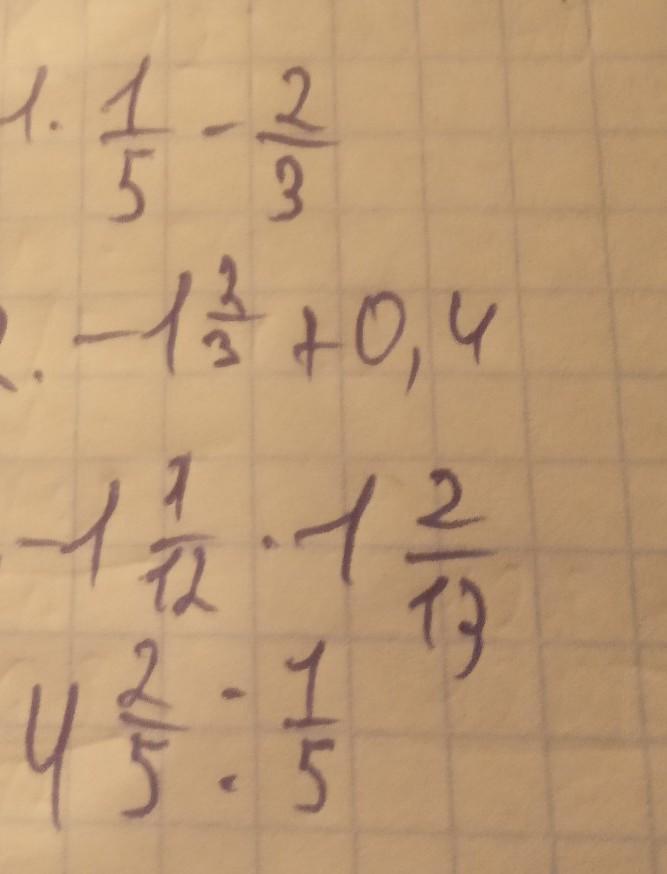 1. 1/5 - 2/3
2. -1 3/3 + 0,4
-1 1/12 · 1 2/13
4 2/5 : 1/5